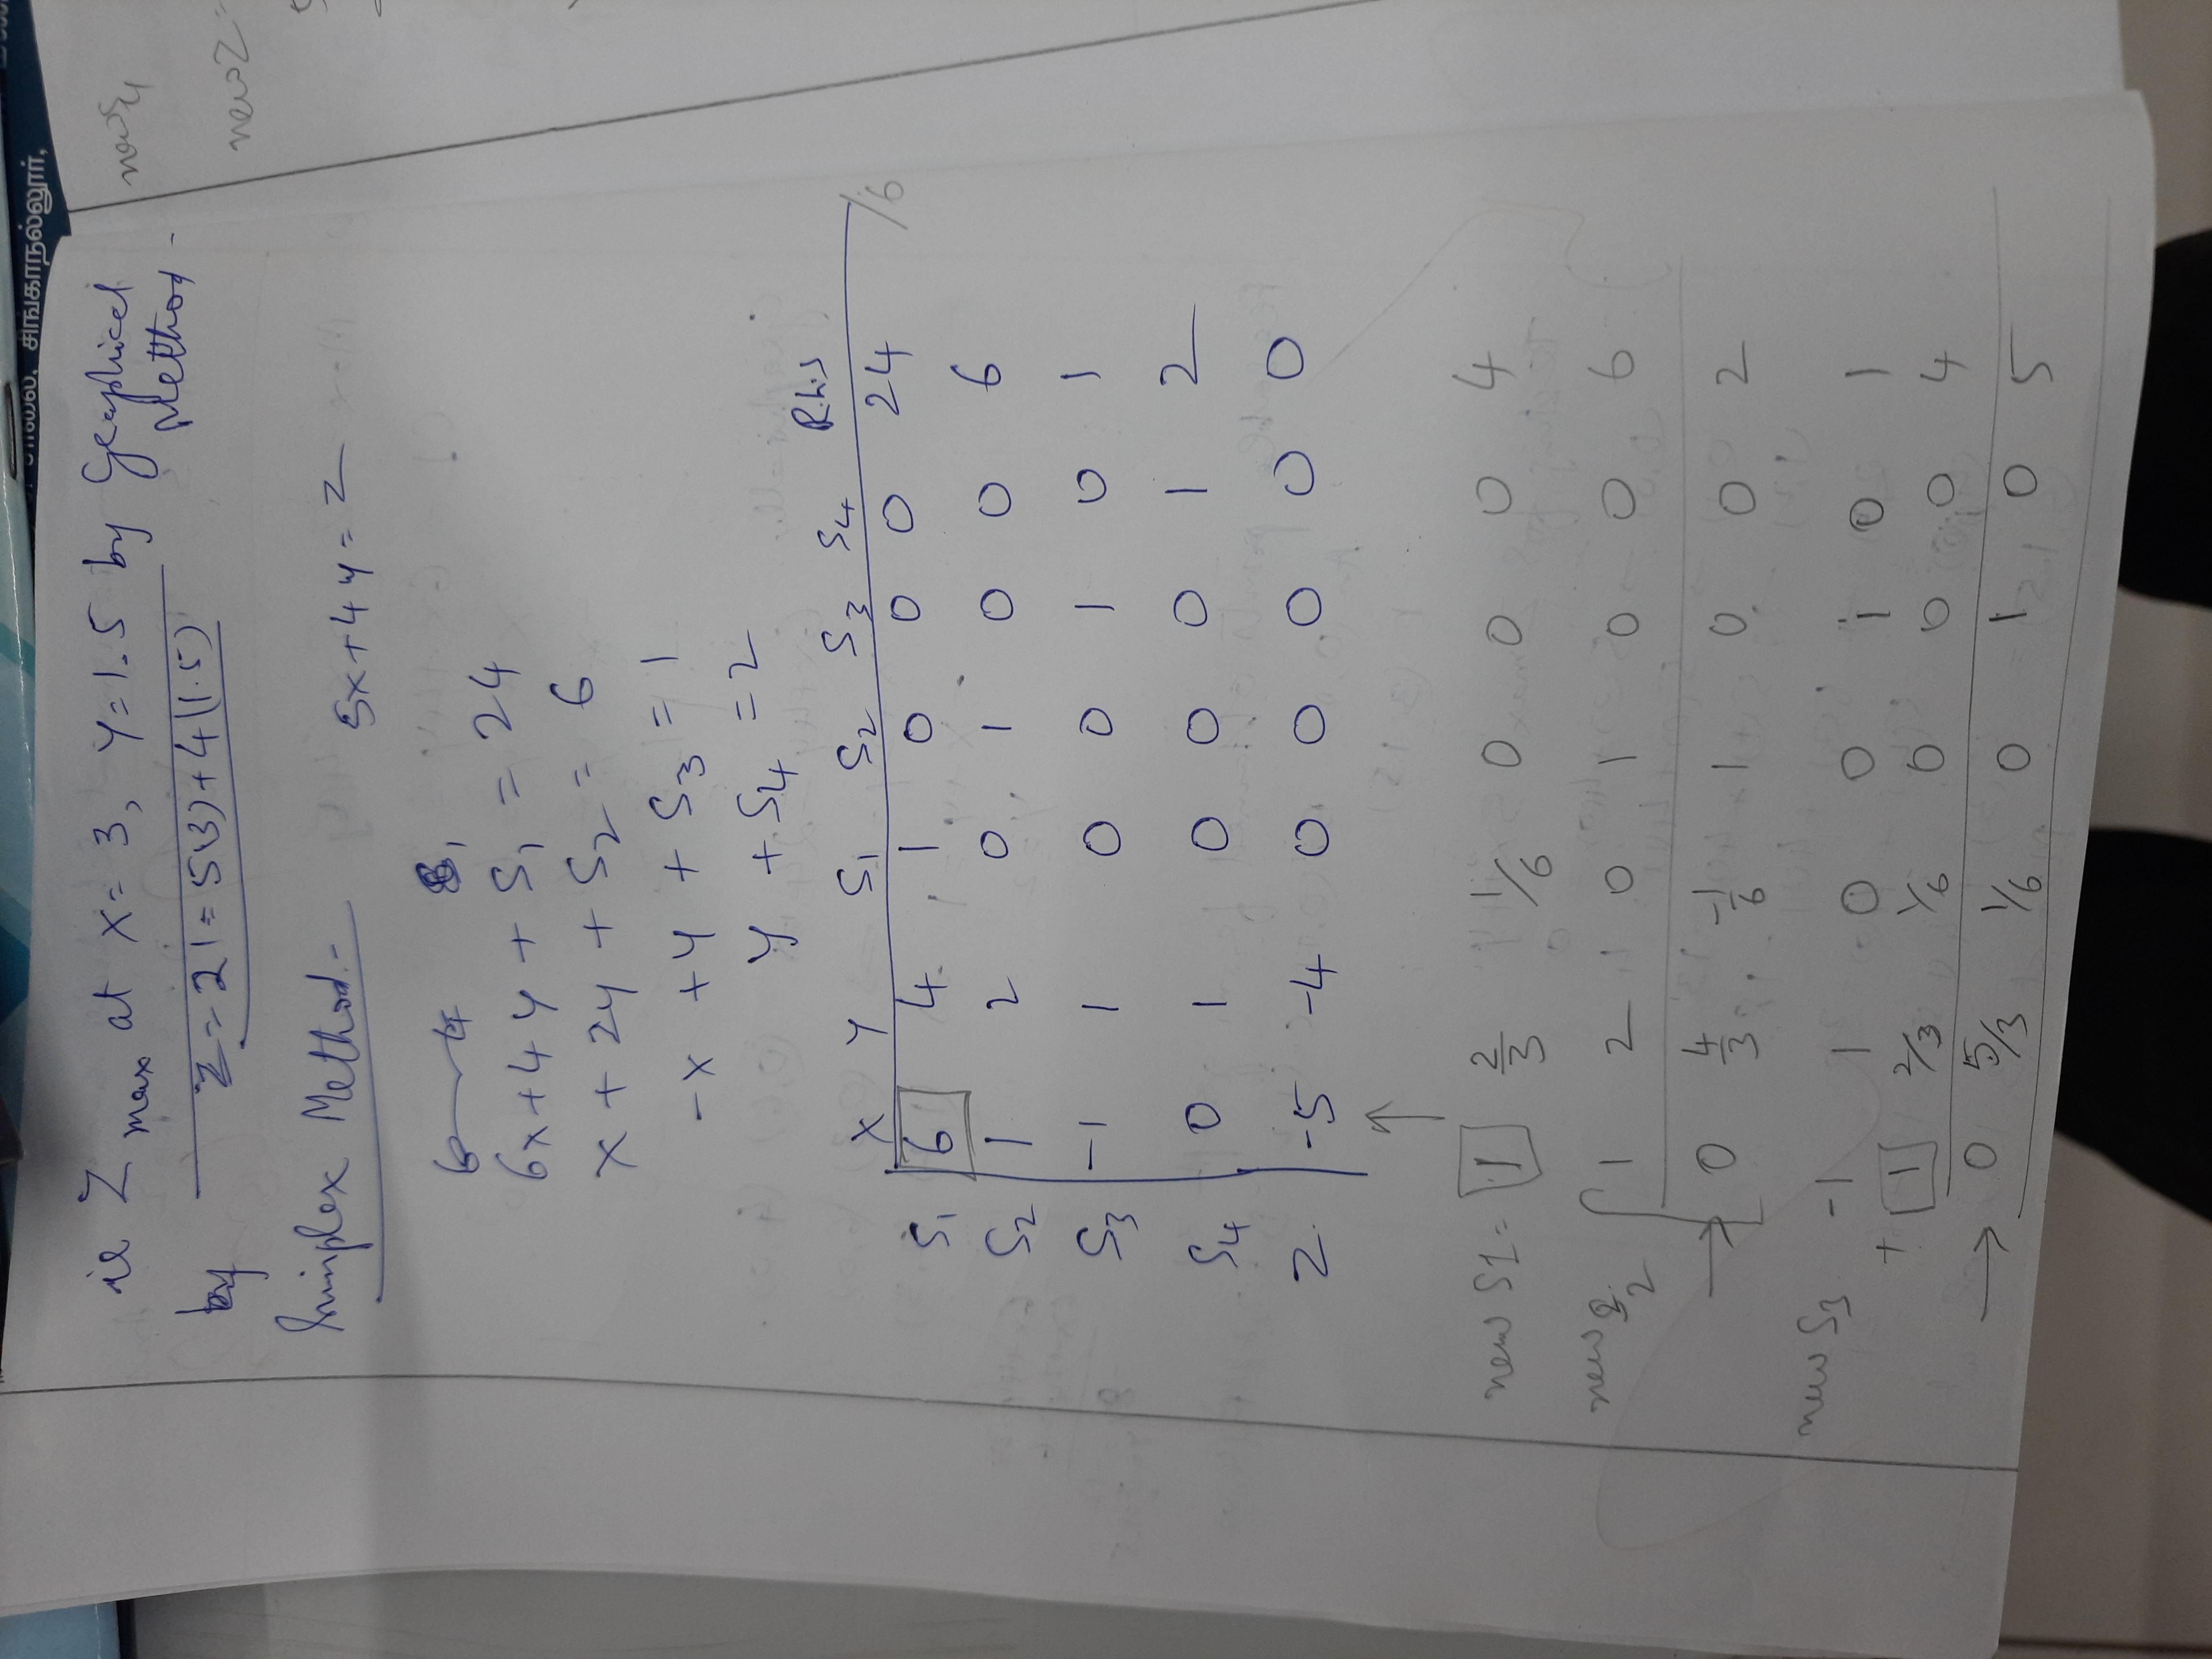 சாலை, சிங்காநல்லூர்,
ie Z max at x = 3, y = 1.5 by Graphical Method -
Z = 21 = 5(3) + 4(1.5)
by
Simplex Method -
5x + 4y = Z
6x + 4y + S1 = 24
x + 2y + S2 = 6
-x + y + S3 = 1
y + S4 = 2
x y S1 S2 S3 S4 R.h.s
S1 6 4 1 0 0 0 24 /6
S2 1 2 0 1 0 0 6
S3 -1 1 0 0 1 0 1
S4 0 1 0 0 0 1 2
Z -5 -4 0 0 0 0 0
↑
new S1 = 1 2/3 1/6 0 0 0 4
new S2 1 2 0 1 0 0 6
→ 0 4/3 -1/6 1 0 0 2
new S3 -1 1 0 0 1 0 1
+ 1 2/3 1/6 0 0 0 4
→ 0 5/3 1/6 0 1 0 5
new S4
new Z =